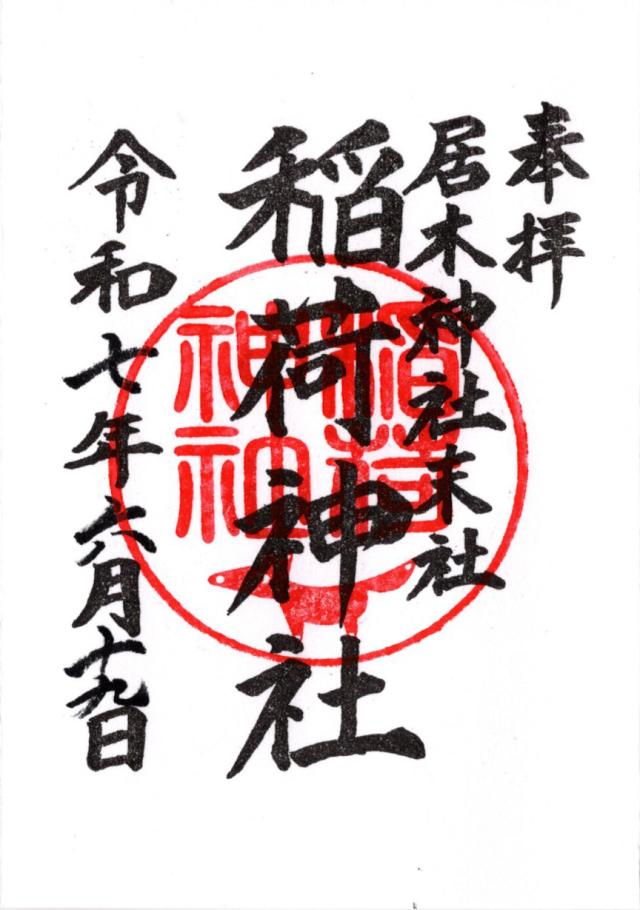 奉拝
居木神社末社
稲荷神社
令和七年六月十九日